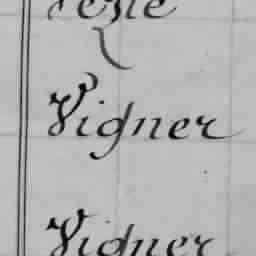 Vigner
Vigner